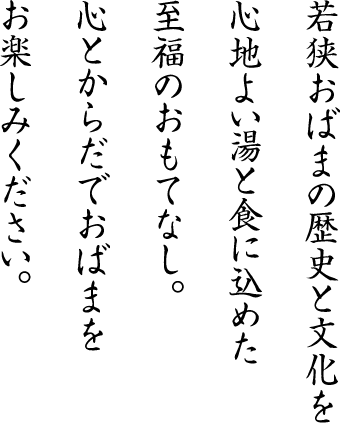 若狭おばまの歴史と文化を
心地よい湯と食に込めた
至福のおもてなし。
心とからだでおばまを
お楽しみください。